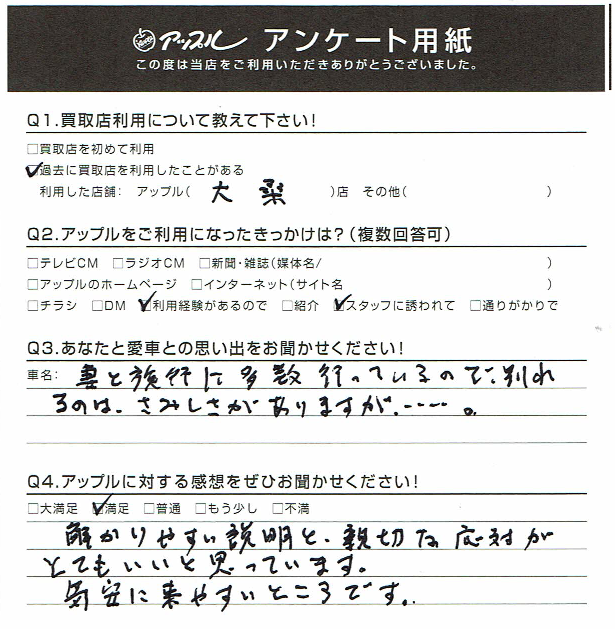 アップル アンケート用紙
この度は当店をご利用いただきありがとうございました。
Q1.買取店利用について教えて下さい!
□買取店を初めて利用
☑過去に買取店を利用したことがある
利用した店舗: アップル( 大桑 )店 その他( )
Q2.アップルをご利用になったきっかけは?(複数回答可)
□テレビCM □ラジオCM □新聞・雑誌(媒体名/ )
□アップルのホームページ □インターネット(サイト名 )
□チラシ □DM ☑利用経験があるので □紹介 ☑スタッフに誘われて □通りがかりで
Q3.あなたと愛車との思い出をお聞かせください!
車名: 妻と旅行に多数行っているので、別れ
るのは、さみしさがありますが、----。
Q4.アップルに対する感想をぜひお聞かせください!
□大満足 ☑満足 □普通 □もう少し □不満
解かりやすい説明と、親切な応対が
とてもいいと思っています。
気安に来やすいところです。